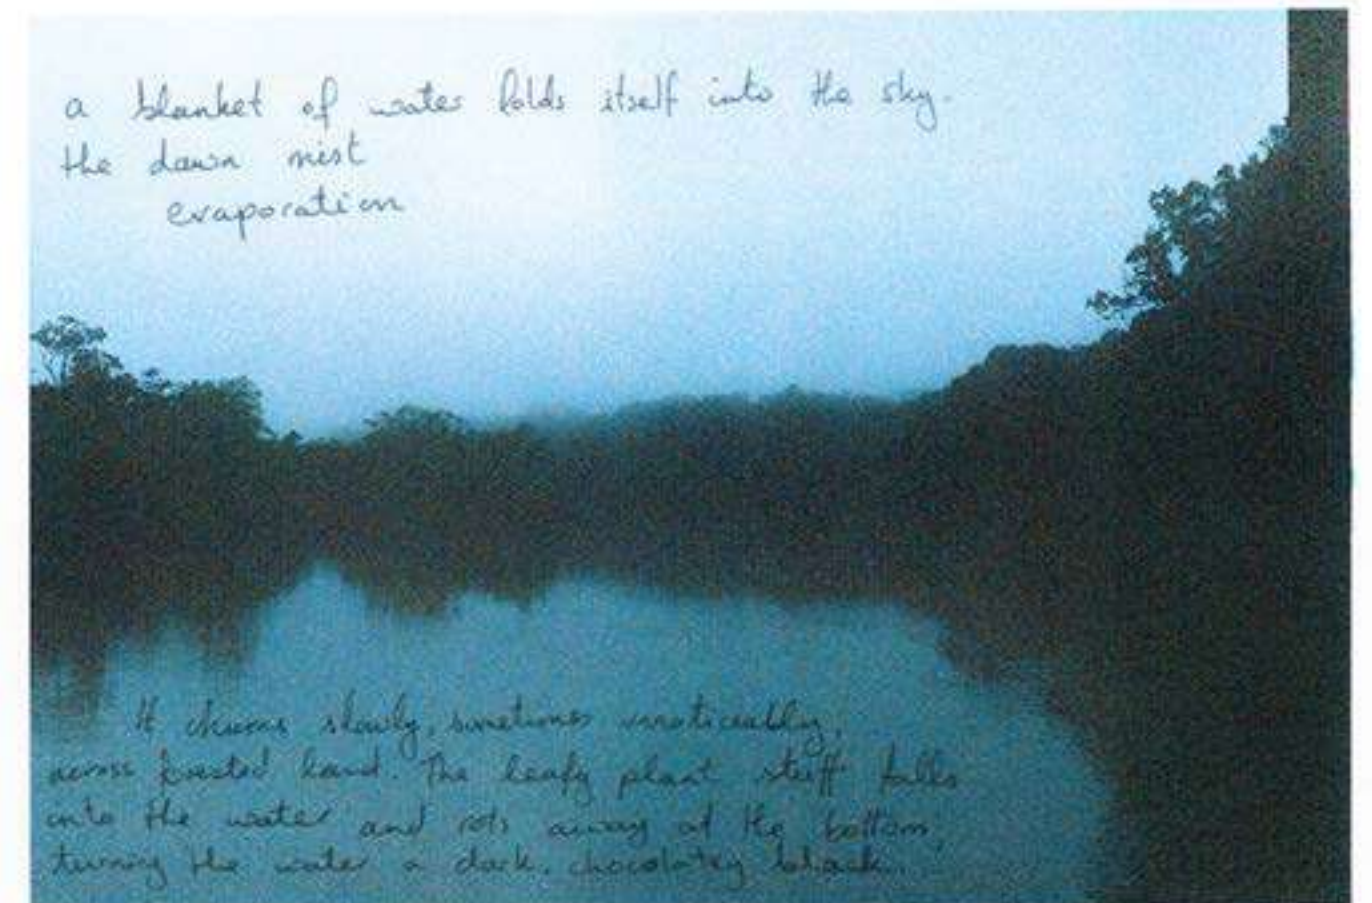 a blanket of water folds itself into the sky.
the dawn mist
evaporation
It churns slowly, sometimes unnoticeably,
across forested land. The leafy plant stuff falls
into the water and rots away at the bottom,
turning the water a dark, chocolatey black.